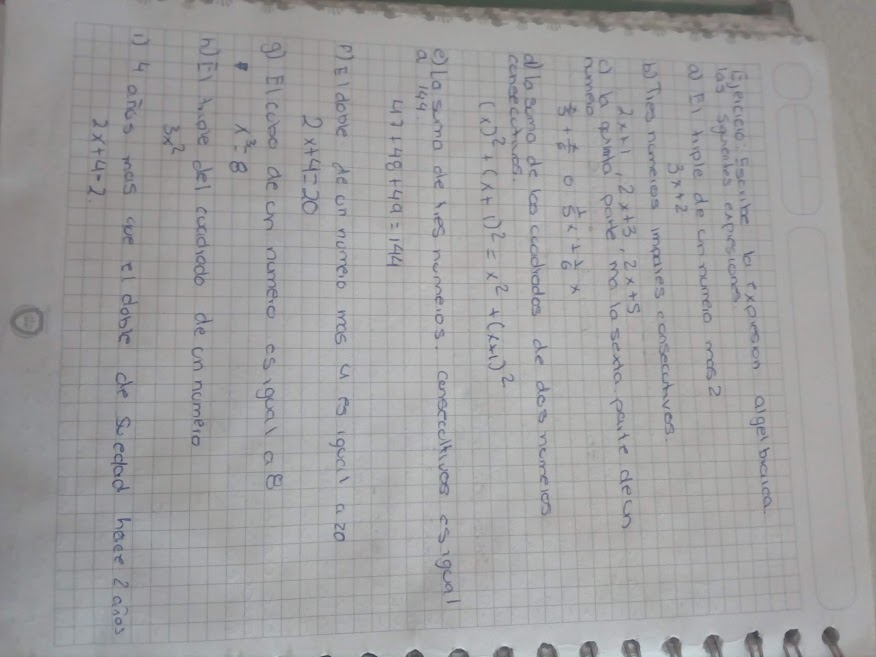 Ejercicio: Escribe la expresion algebraica
las siguientes expresiones
a) El triple de un numero mas 2
3x+2
b) Tres numeros impares consecutivos.
2x+1, 2x+3, 2x+5
c) la quinta parte mas la sexta parte de un
numero
x/5 + x/6 o 1/5 x + 1/6 x
d) la suma de los cuadrados de dos numeros
consecutivos.
(x)² + (x+1)² = x² + (x+1)²
e) La suma de tres numeros. consecutivos es igual
a 144.
47+48+49=144
f) El doble de un numero mas 4 es igual a 20
2x+4=20
g) El cubo de un numero es igual a 8
x³=8
h) El triple del cuadrado de un numero
3x²
i) 4 años mas que el doble de su edad hace 2 años
2x+4-2.